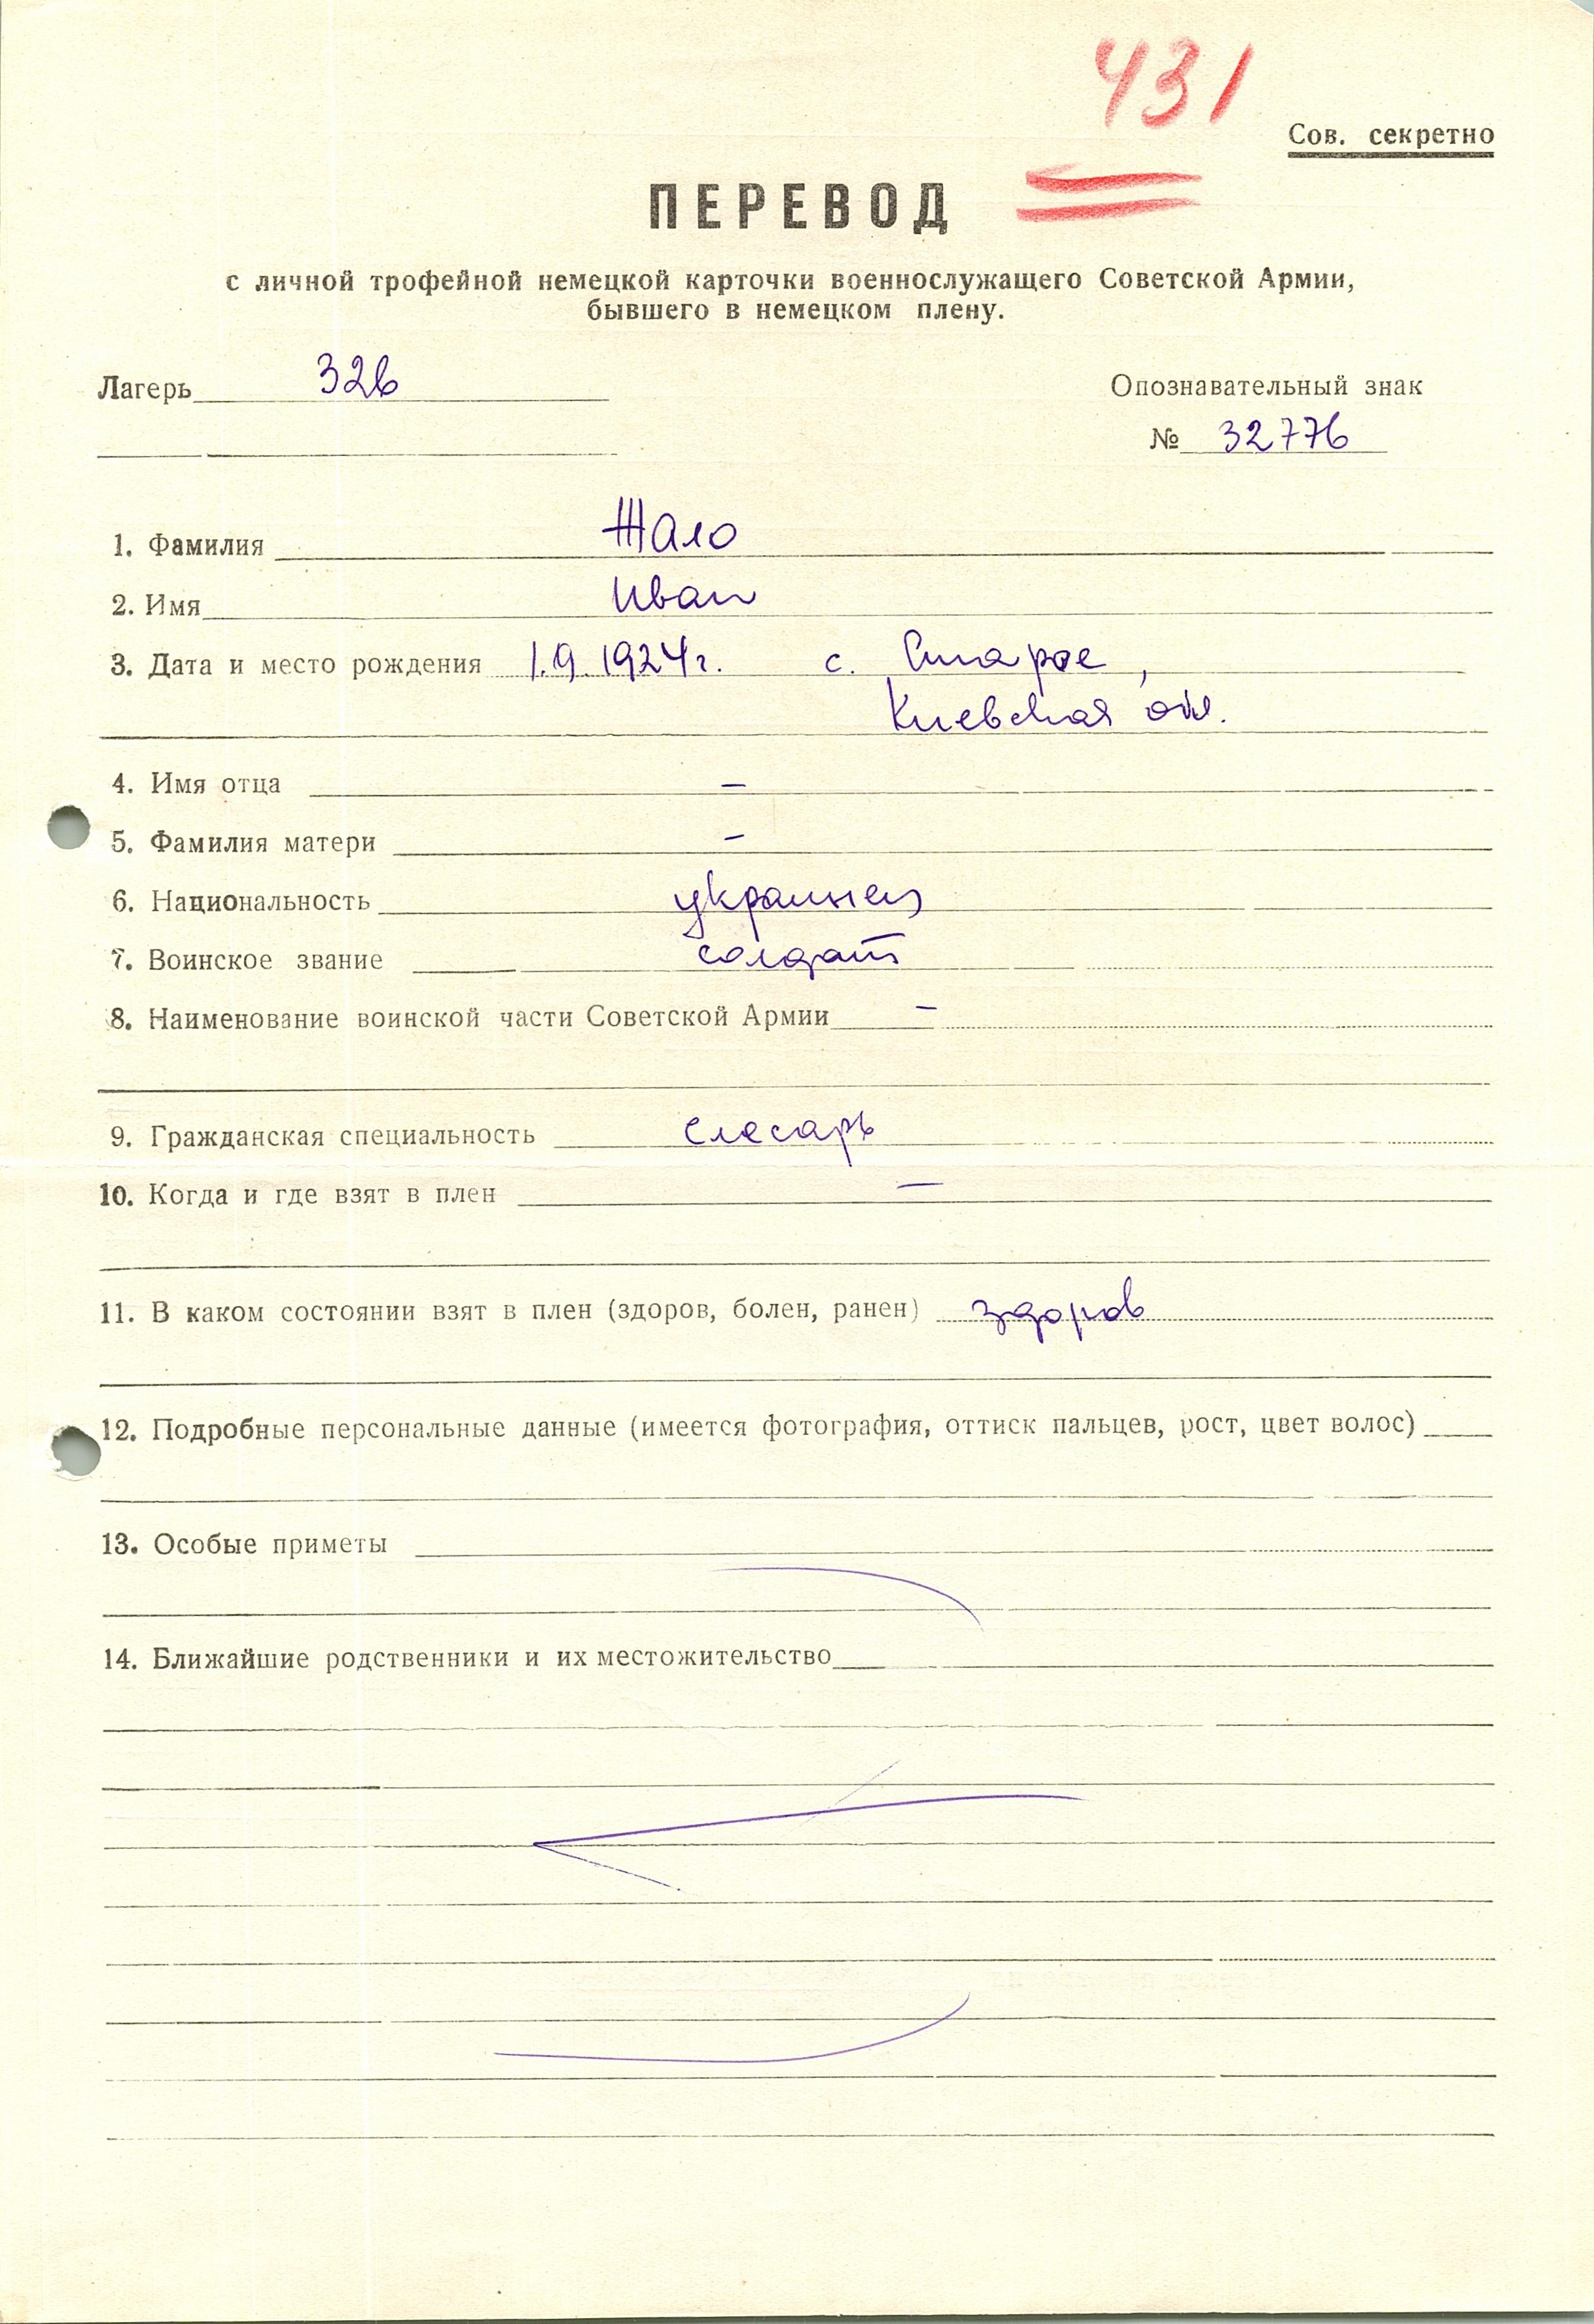 431
Сов. секретно
ПЕРЕВОД
с личной трофейной немецкой карточки военнослужащего Советской Армии,
бывшего в немецком плену.
Лагерь 326
Опознавательный знак
№ 32776
1. Фамилия Жало
2. Имя Иван
3. Дата и место рождения 1.9.1924г. с. Старое,
Киевская обл.
4. Имя отца –
5. Фамилия матери –
6. Национальность украинец
7. Воинское звание солдат
8. Наименование воинской части Советской Армии –
9. Гражданская специальность слесарь
10. Когда и где взят в плен –
11. В каком состоянии взят в плен (здоров, болен, ранен) здоров
12. Подробные персональные данные (имеется фотография, оттиск пальцев, рост, цвет волос)
13. Особые приметы
14. Ближайшие родственники и их местожительство